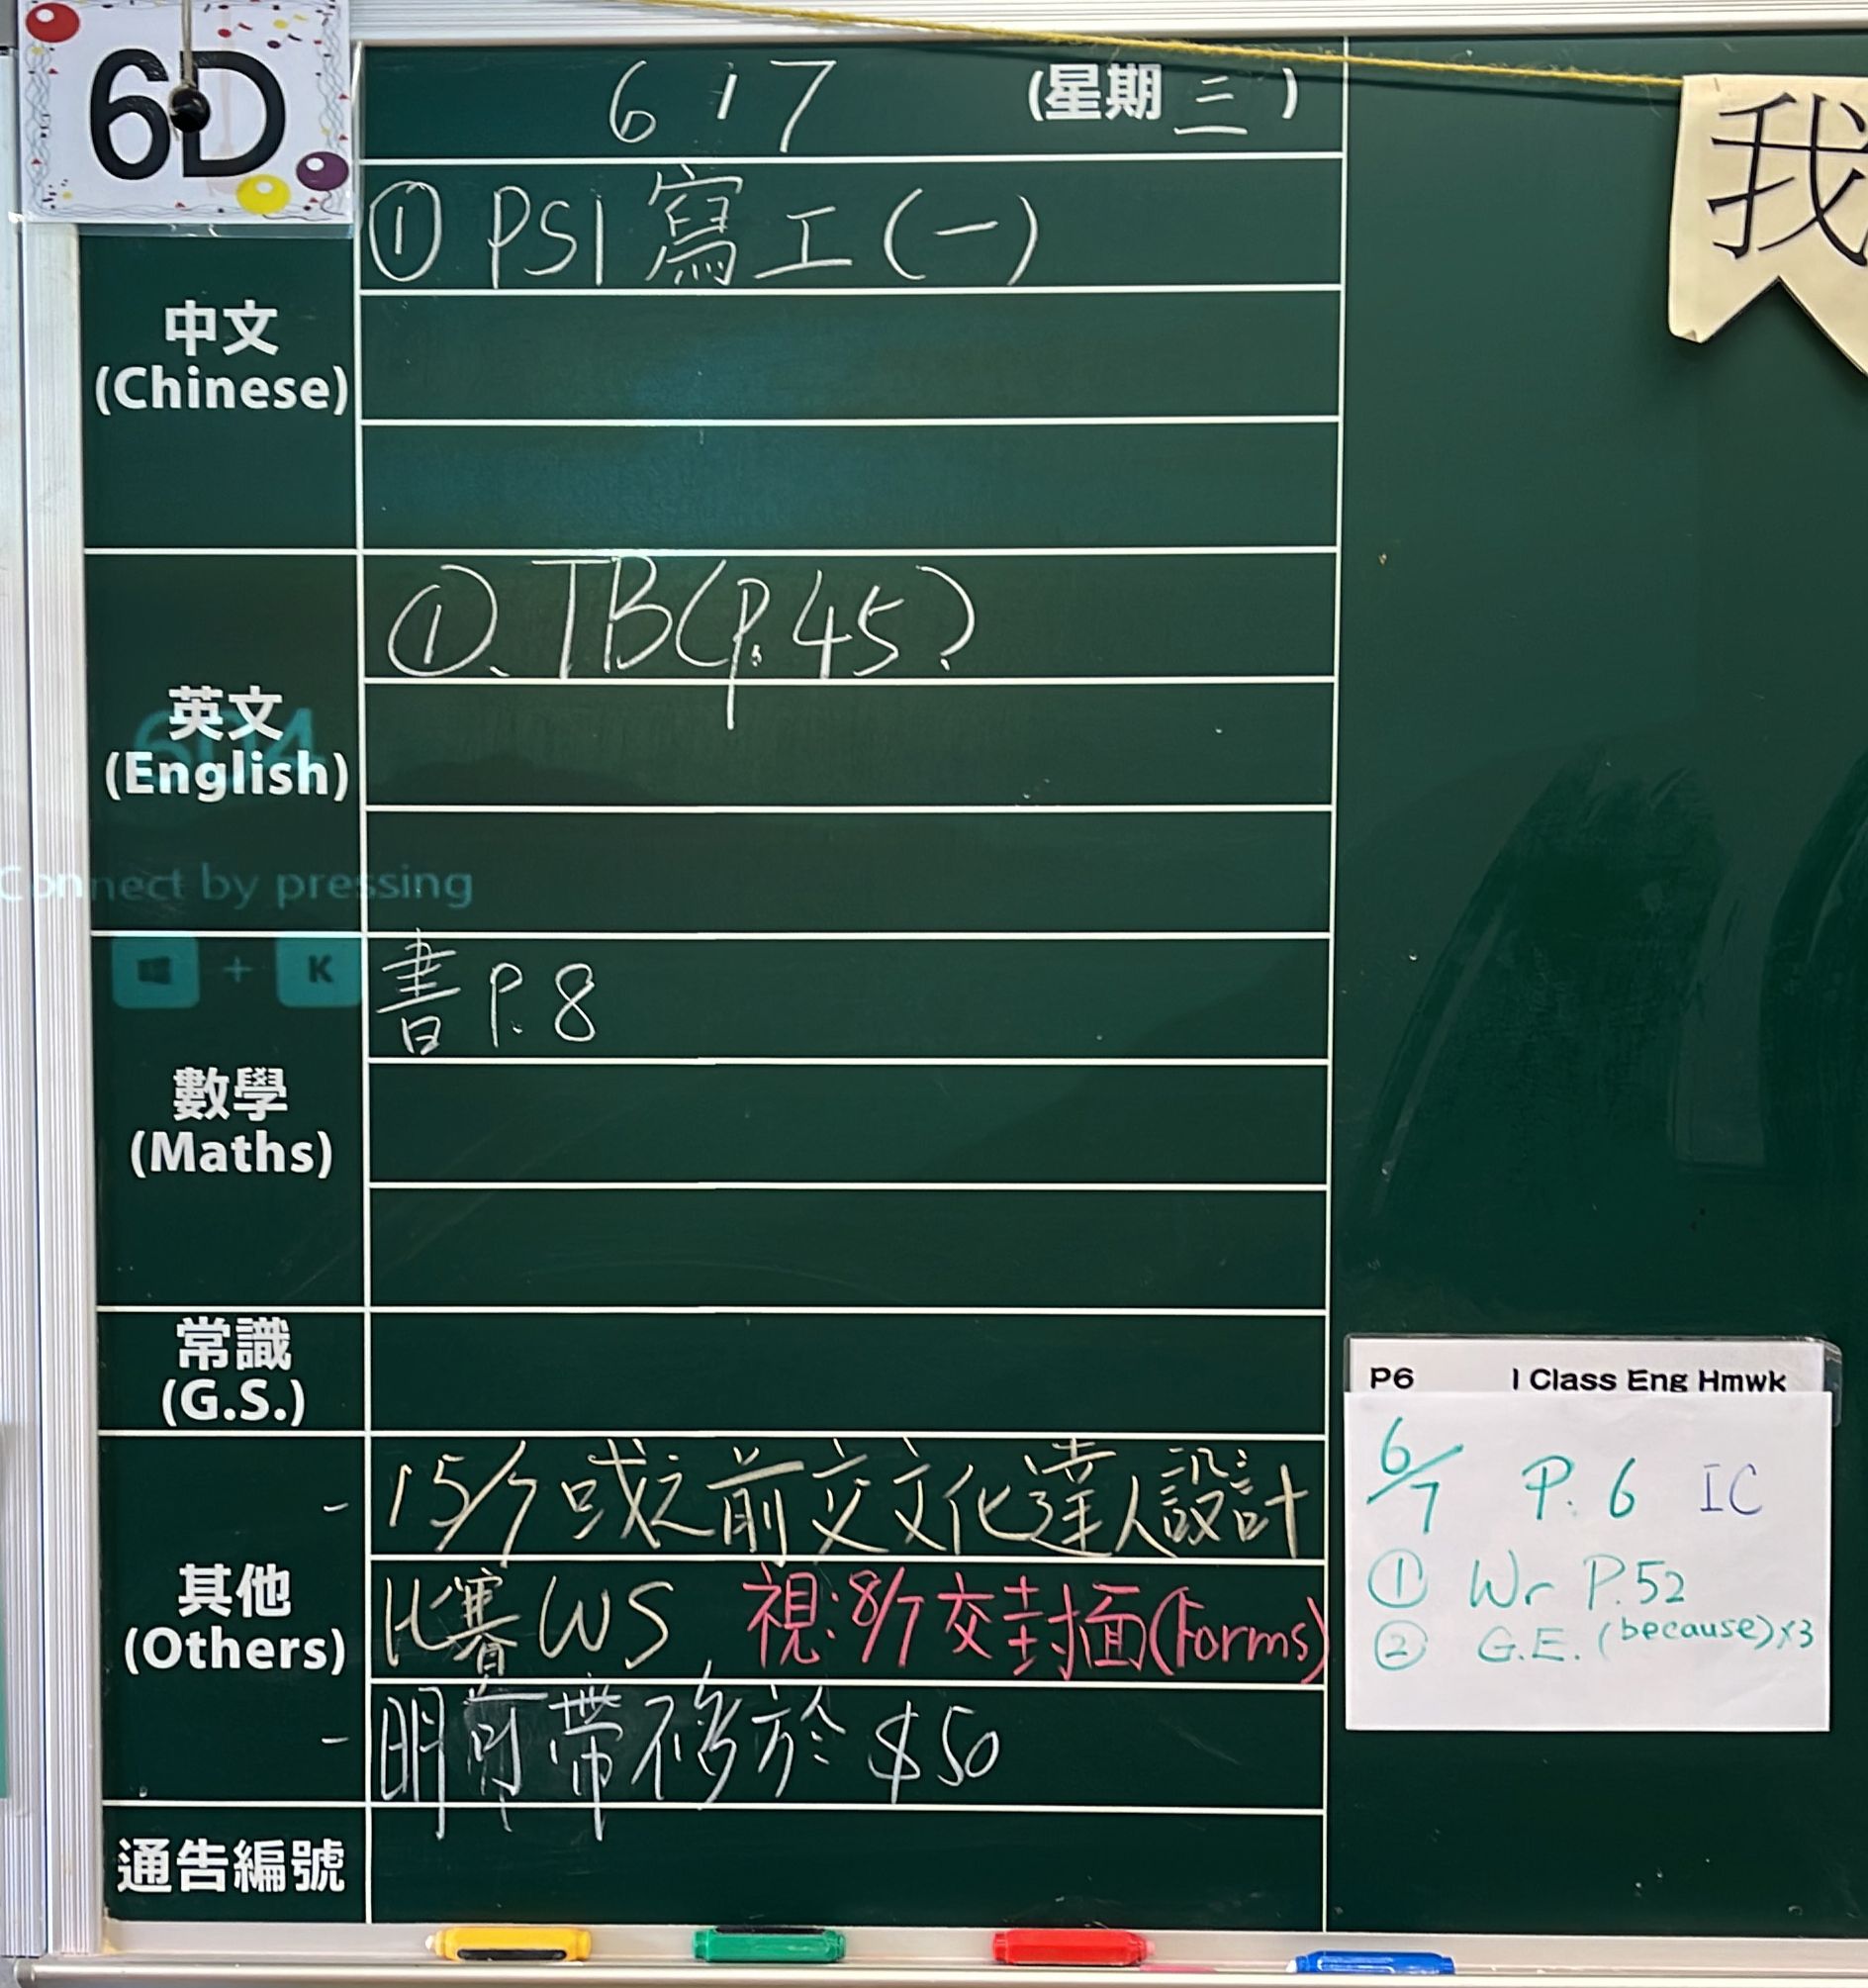 6D
6/7 (星期三)
中文
(Chinese)
① PS1 寫工(一)
英文
(English)
①. TB(P.45)
604
Connect by pressing
+ K
數學
(Maths)
書 P.8
常識
(G.S.)
其他
(Others)
- 15/7或之前交文化達人設計
比賽WS 視:8/7交封面(Forms)
- 明可帶不多於$50
通告編號
我
P6 I Class Eng Hmwk
6/7 P.6 IC
① Wr P.52
② G.E. (because)x3